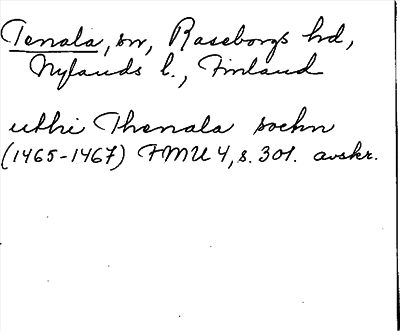 Tenala, sn, Raseborgs hd,
Nylands l., Finland
uthi Thenala sockn
(1465-1467) FMU 4, s. 301. avskr.